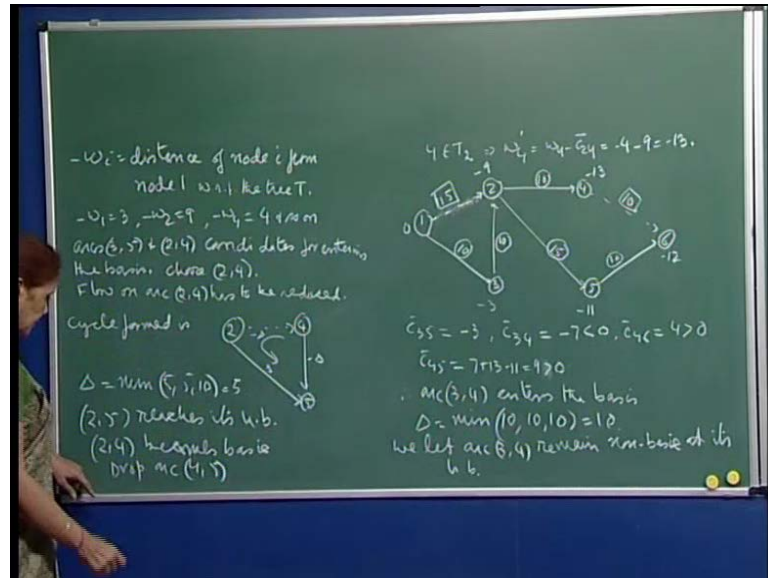 -w_i = distance of node i from
node 1 w.r.t. the tree T.
-w_1 = 3, -w_2 = 9, -w_4 = 4 & so on
arcs (3,5) & (2,4) candidates for entering
the basis. choose (2,4).
Flow on arc (2,4) has to be reduced.
cycle formed is
2 4
-Δ
5
Δ = min (5, 5, 10) = 5
(2,5) reaches its u.b.
(2,4) becomes basic
Drop arc (4,5)
4 ∈ T_2 ⇒ w'_4 = w_4 - c̄_24 = -4 - 9 = -13.
-9 -13
15 2 4 10
0 1
10 3 5 10 6
-12
-11
c̄_35 = -3, c̄_34 = -7 < 0, c̄_46 = 4 > 0
c̄_45 = 7+13-11 = 9 > 0
∴ arc (3,4) enters the basis
Δ = min (10, 10, 10) = 10
we let arc (3,4) remain non-basic at its
u.b.